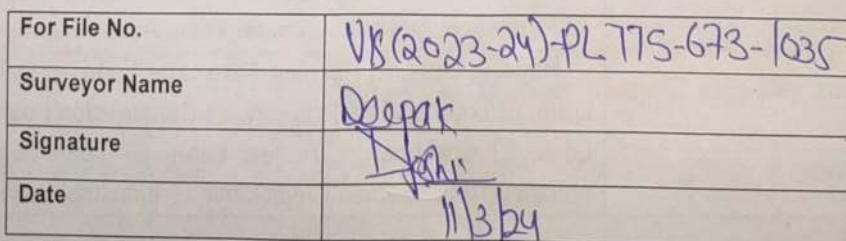 For File No. VIS(2023-24)-PL775-673-1035
Surveyor Name Deepak
Signature Joshi
Date 11/3/24